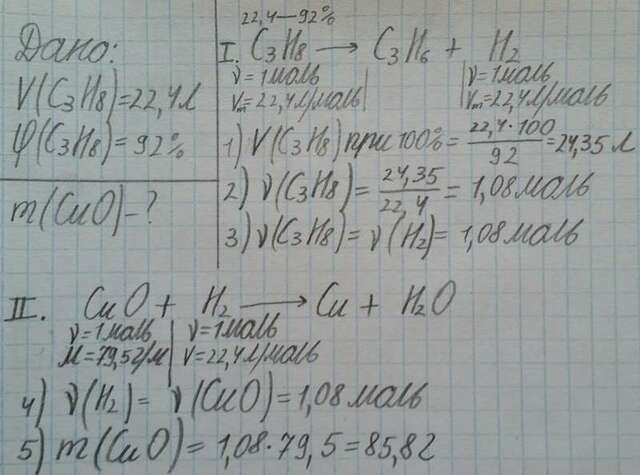 Дано:
V(C₃H₈)=22,4л
φ(C₃H₈)=92%
m(CuO)-?
22,4—92%
I. C₃H₈ → C₃H₆ + H₂
ν=1моль | ν=1моль
Vm=22,4л/моль | Vm=22,4л/моль
1) V(C₃H₈) при 100%= 22,4·100/92 =24,35 л
2) ν(C₃H₈)= 24,35/22,4 = 1,08моль
3) ν(C₃H₈)= ν(H₂)= 1,08моль
II. CuO + H₂ → Cu + H₂O
ν=1моль | ν=1моль
M=79,5г/м | V=22,4л/моль
4) ν(H₂)= ν(CuO)=1,08моль
5) m(CuO)= 1,08·79,5=85,8г